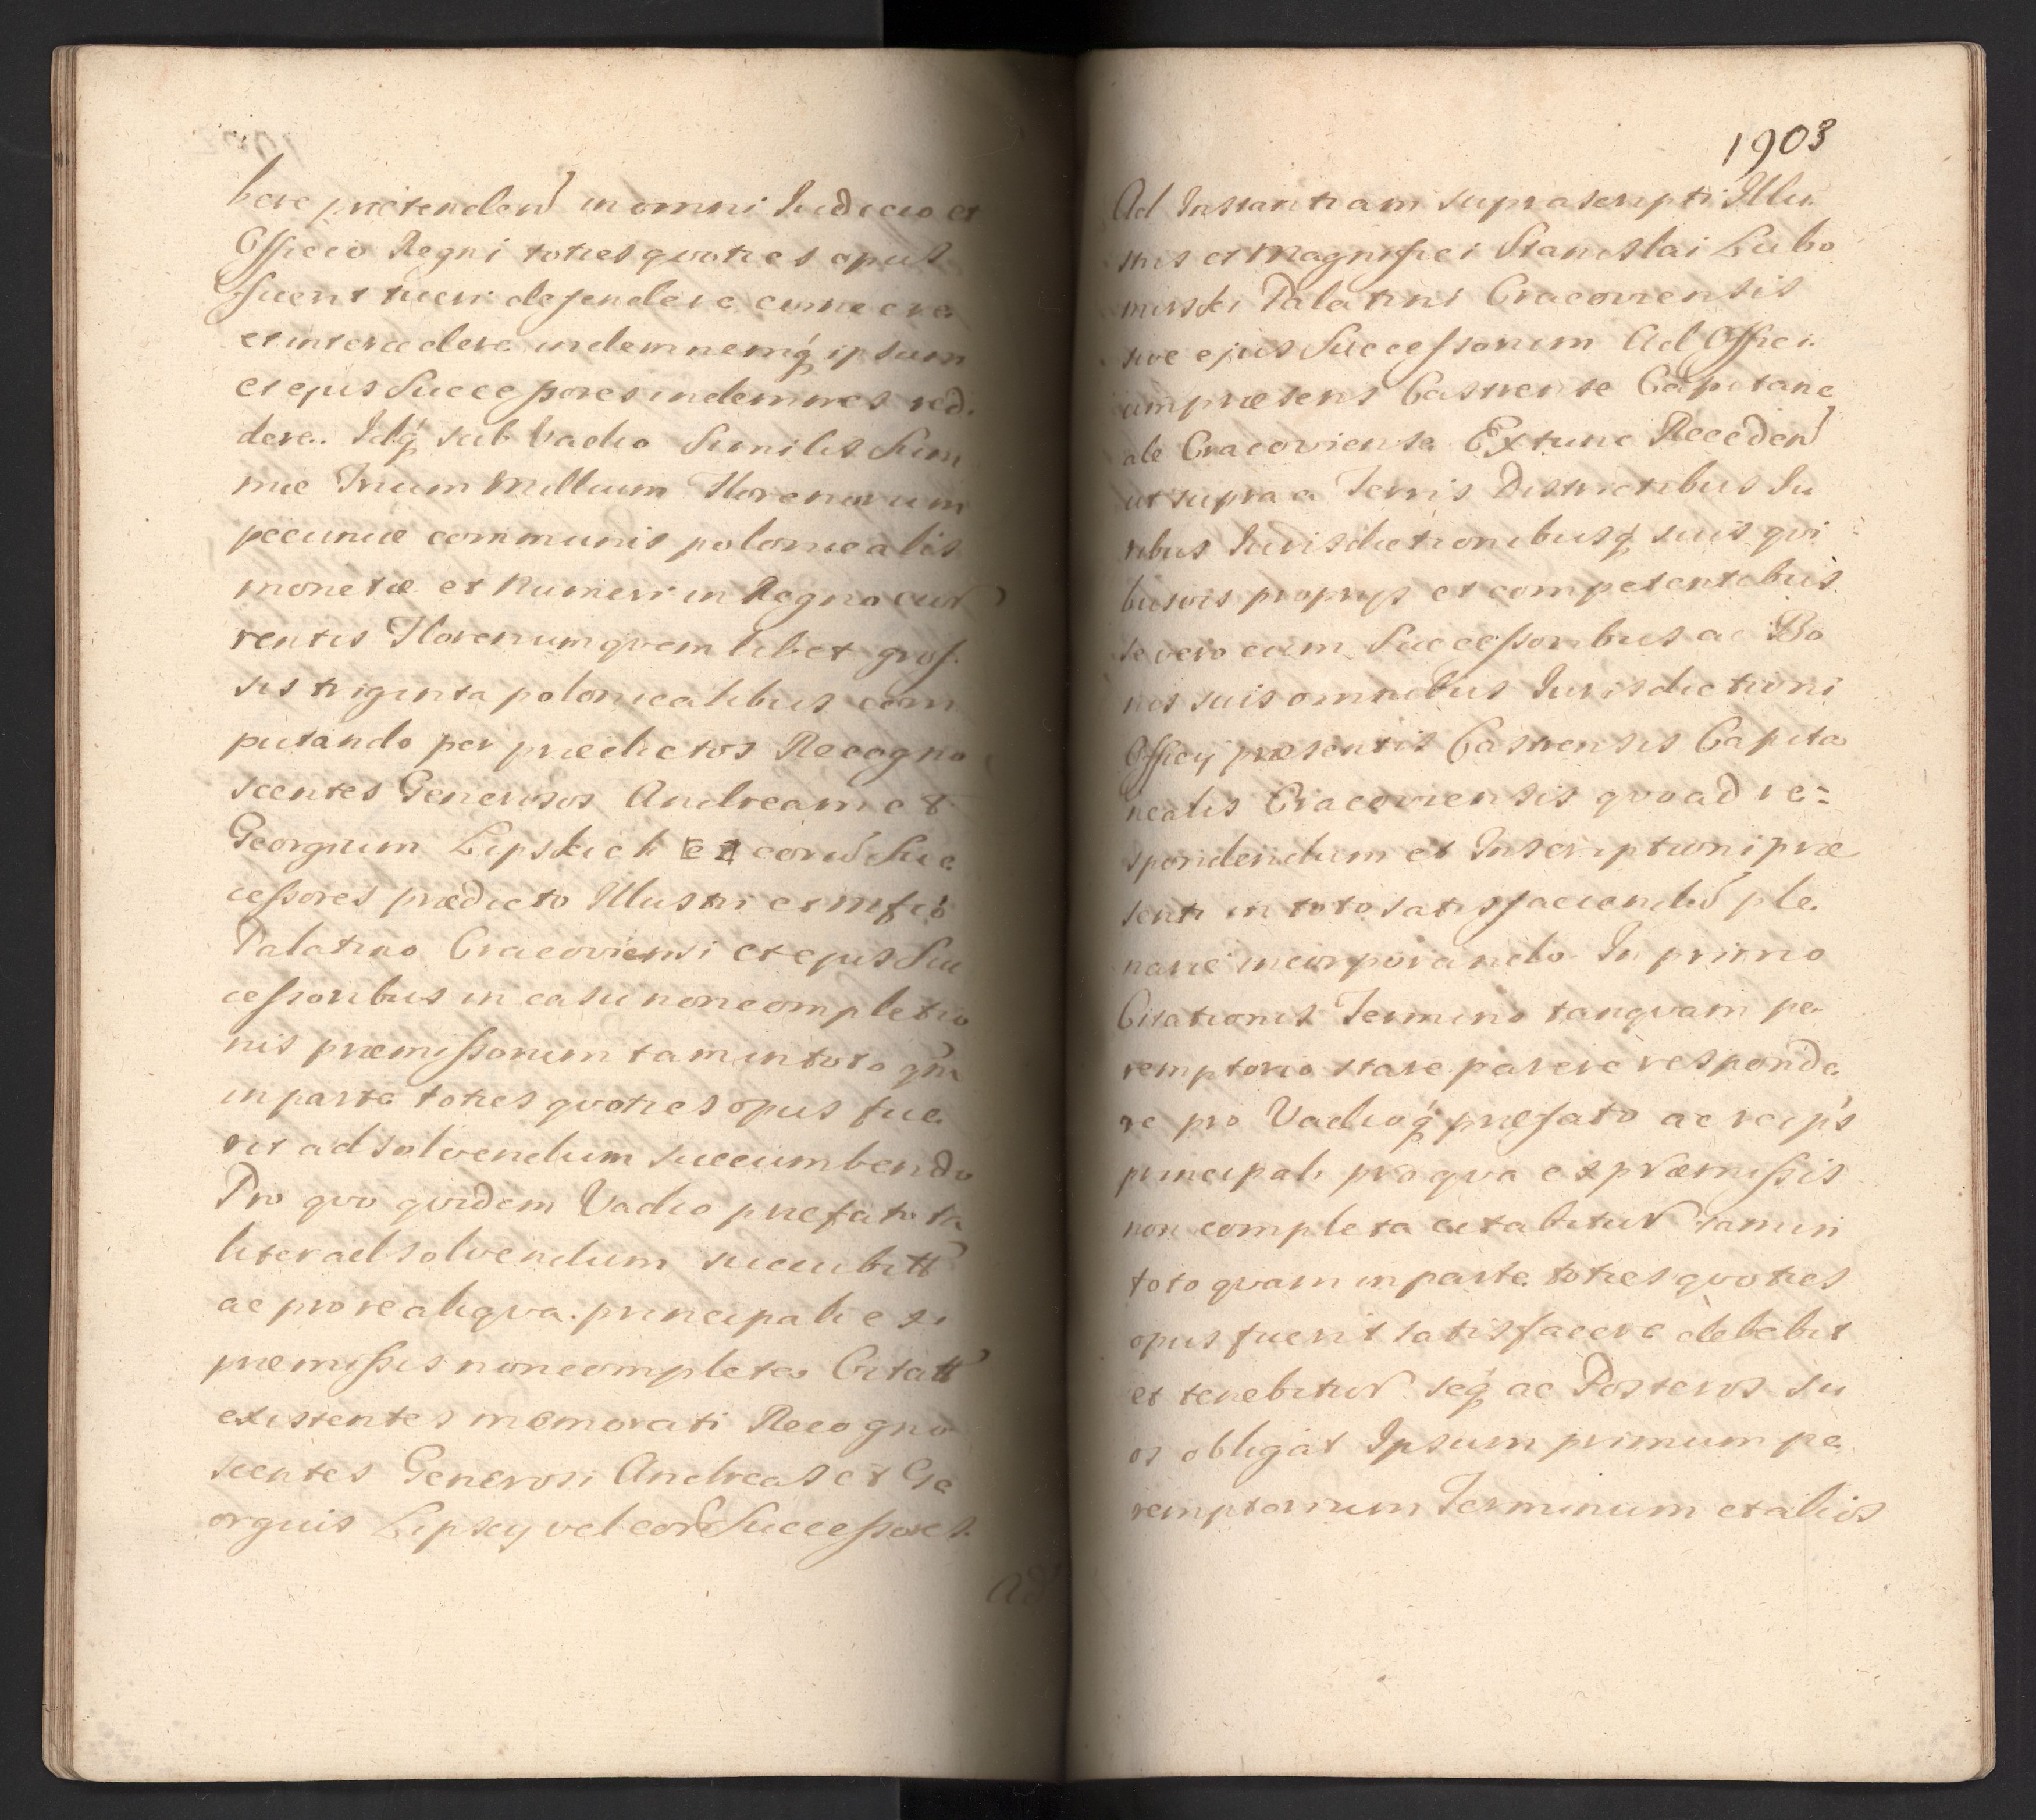 bere prætenden in omni Iudicio et
Officio Regni toties quoties opus
fuerit tueri defendere evincere
et intercedere indemnemq́ ipsum
et ejus Successores indemnes red
dere. Idq́ sub Vadio Similis Sum
mæ Trium Millium Florenorum
pecuniæ communis polonicalis
monetæ et Numeri in Regno cur
rentis Florenum quemlibet gros
sis triginta polonicalibus com
putando per prædictos Recogno
scentes Generosos Andream et
Georgium Lipskich et eorū Suc
cessores prædicto Illustri et Mfco
Palatino Cracoviensi et ejus Suc
cessoribus in casu non completio
nis præmissorum tam in toto qm
in parte toties quoties opus fue
rit ad solvendum succumbendo
Pro quo quidem Vadio præfato ta
liter ad solvendum succubitt
ac pro re aliqua principali ex
præmissis non completa Citatt
existentes memorati Recogno
scentes Generosi Andreas et Ge
orgius Lipscy vel eor Successores
Ad
1903
Ad Instantiam suprascripti Illu
stris et Magnifici Stanislai Lubo
mirski Palatini Cracoviensis
sive ejus Successorum Ad Offici
um præsens Castrense Capitane
ale Cracoviense Extunc Receden
ut supra a Terris Districtibus Iu
ribus Iurisdictionibusq́ suis qui
busvis proprys et competentibus
se vero cum Successoribus ac Bo
nis suis omnibus Iurisdictioni
Officy præsentis Castrensis Capita
nealis Cracoviensis quoad re=
spondendum et Inscriptioni præ
senti in toto satisfaciendū ple
narie incorporando In primo
Citationis Termino tanquam pe
remptorio stare parere responde
re pro Vadioq́ præfato ac re ips
principali pro qua ex præmissis
non completa citabitur tam in
toto quam in parte toties quoties
opus fuerit satisfacere debebit
et tenebitur seq́ ac Posteros su
os obligat Ipsum primum pe
remptorium Terminum et alios